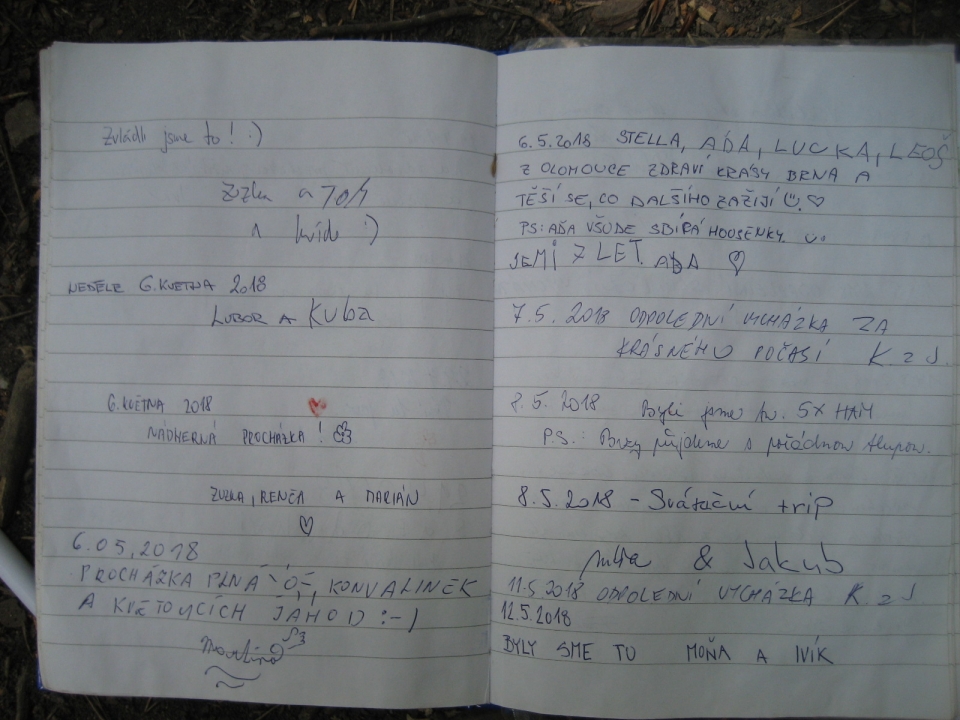 Zvládli jsme to! :)
Zuzka a
NEDĚLE 6. KVĚTNA 2018
LUBOR A Kuba
6. KVĚTNA 2018
NÁDHERNÁ PROCHÁZKA!
ZUZKA, RENČA A MARIÁN
6.05.2018
PROCHÁZKA PLNÁ KONVALINEK
A KVĚTOUCÍCH JAHOD :-)
Martina
6.5.2018 STELLA, ADA, LUCKA, LEOŠ
Z OLOMOUCE ZDRAVÍ KRÁSY BRNA A
TĚŠÍ SE, CO DALŠÍHO ZAŽIJÍ
PS: AĎA VŠUDE SBÍRÁ HOUSENKY
JE MI 7 LET. ADA
7.5. 2018 ODPOLEDNÍ VYCHÁZKA ZA
KRÁSNÉHO POČASÍ K z J.
8.5. 2018 Byli jsme tu. 5X HAM
P.S.: Brzy přijdeme s pořádnou tlupou.
8.5.2018 - Sváteční trip
& Jakub
11.5 2018 ODPOLEDNÍ VYCHÁZKA K z J
12.5.2018
BYLY SME TU MOŇA A IVÍK